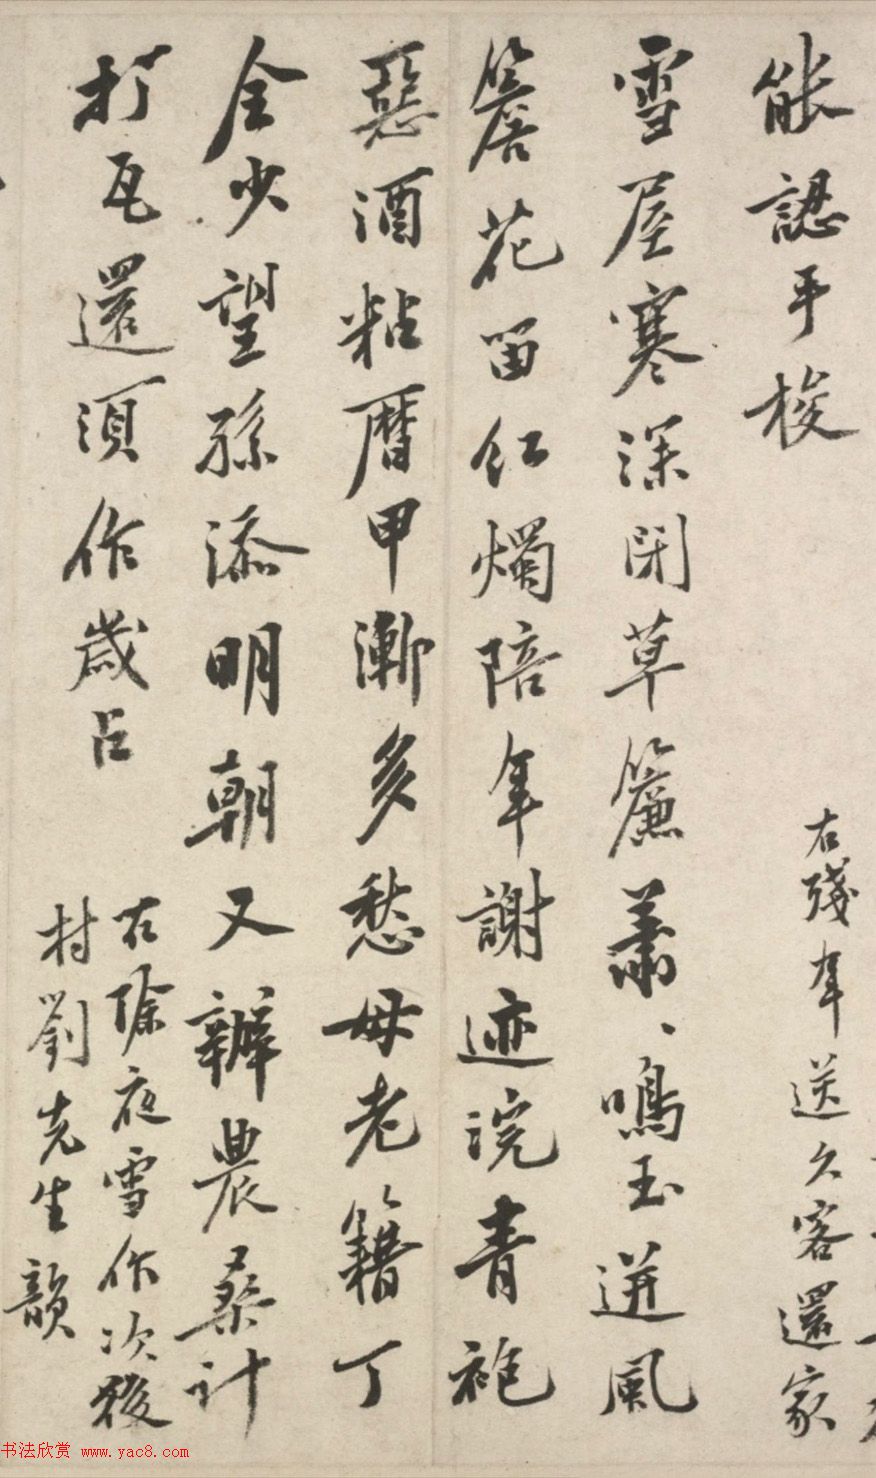 能認手梭
右殘年送久客還家
雪屋寒深閉草簾蕭、鳴玉迸風
簷花留紅燭陪年謝迹浣青袍
惡酒粘曆甲漸多愁母老籍丁
全少望孫添明朝又辦農桑計
打瓦還須作歲占
右除夜雪作次後
村劉先生韻
书法欣赏 www.yac8.com